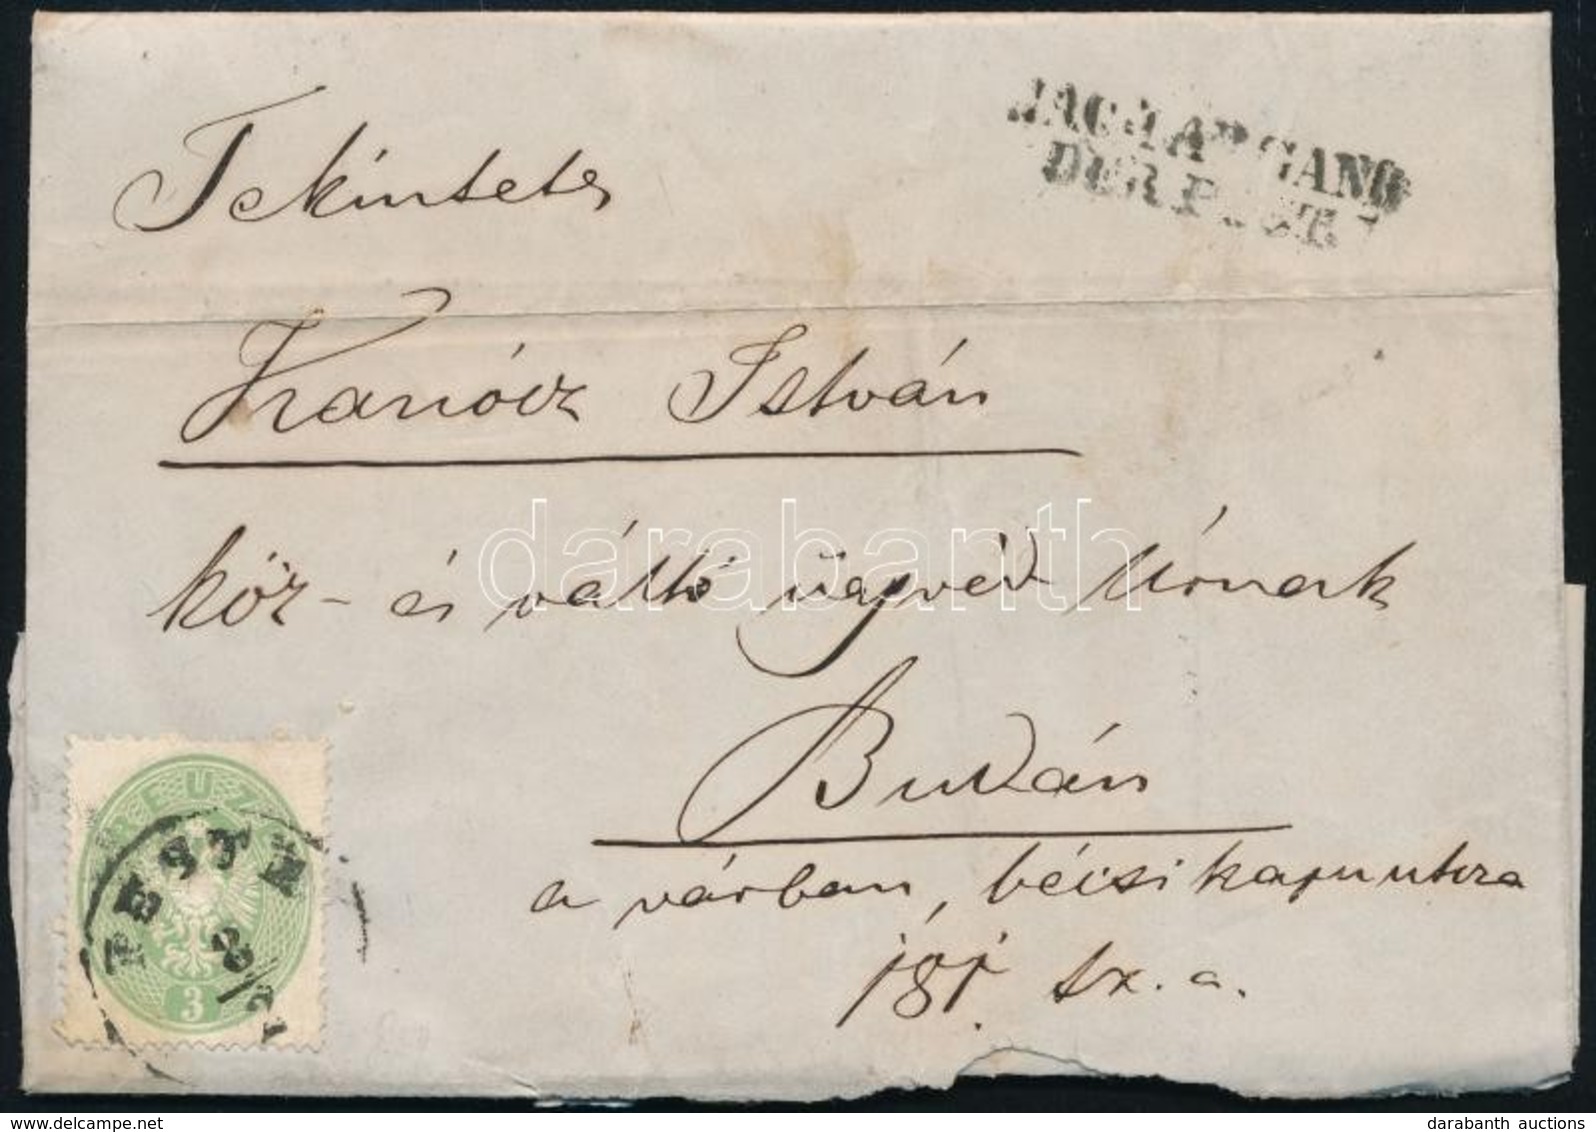 Tekintetes
NACH ABGANG
DER POST.
István
köz- és váltó ügyvéd Úrnak
Budán
a várban, bécsikapu utcza
181. sz. a.
KREUZER
PESTH
8/2
3
darabanth
delcampe.net
darabanth auctions